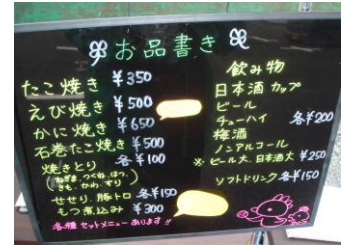 お品書き
たこ焼き ¥350
えび焼き ¥500
かに焼き ¥650
石巻たこ焼き ¥500
焼きとり 各¥100
(ねぎま、つくね、はつ、
きも、かわ、ずり)
せせり、豚トロ 各¥150
もつ煮込み ¥300
各種セットメニューあります!!
飲み物
日本酒カップ
ビール
チューハイ 各¥200
梅酒
ノンアルコール
※ビール大、日本酒大 ¥250
ソフトドリンク 各¥150